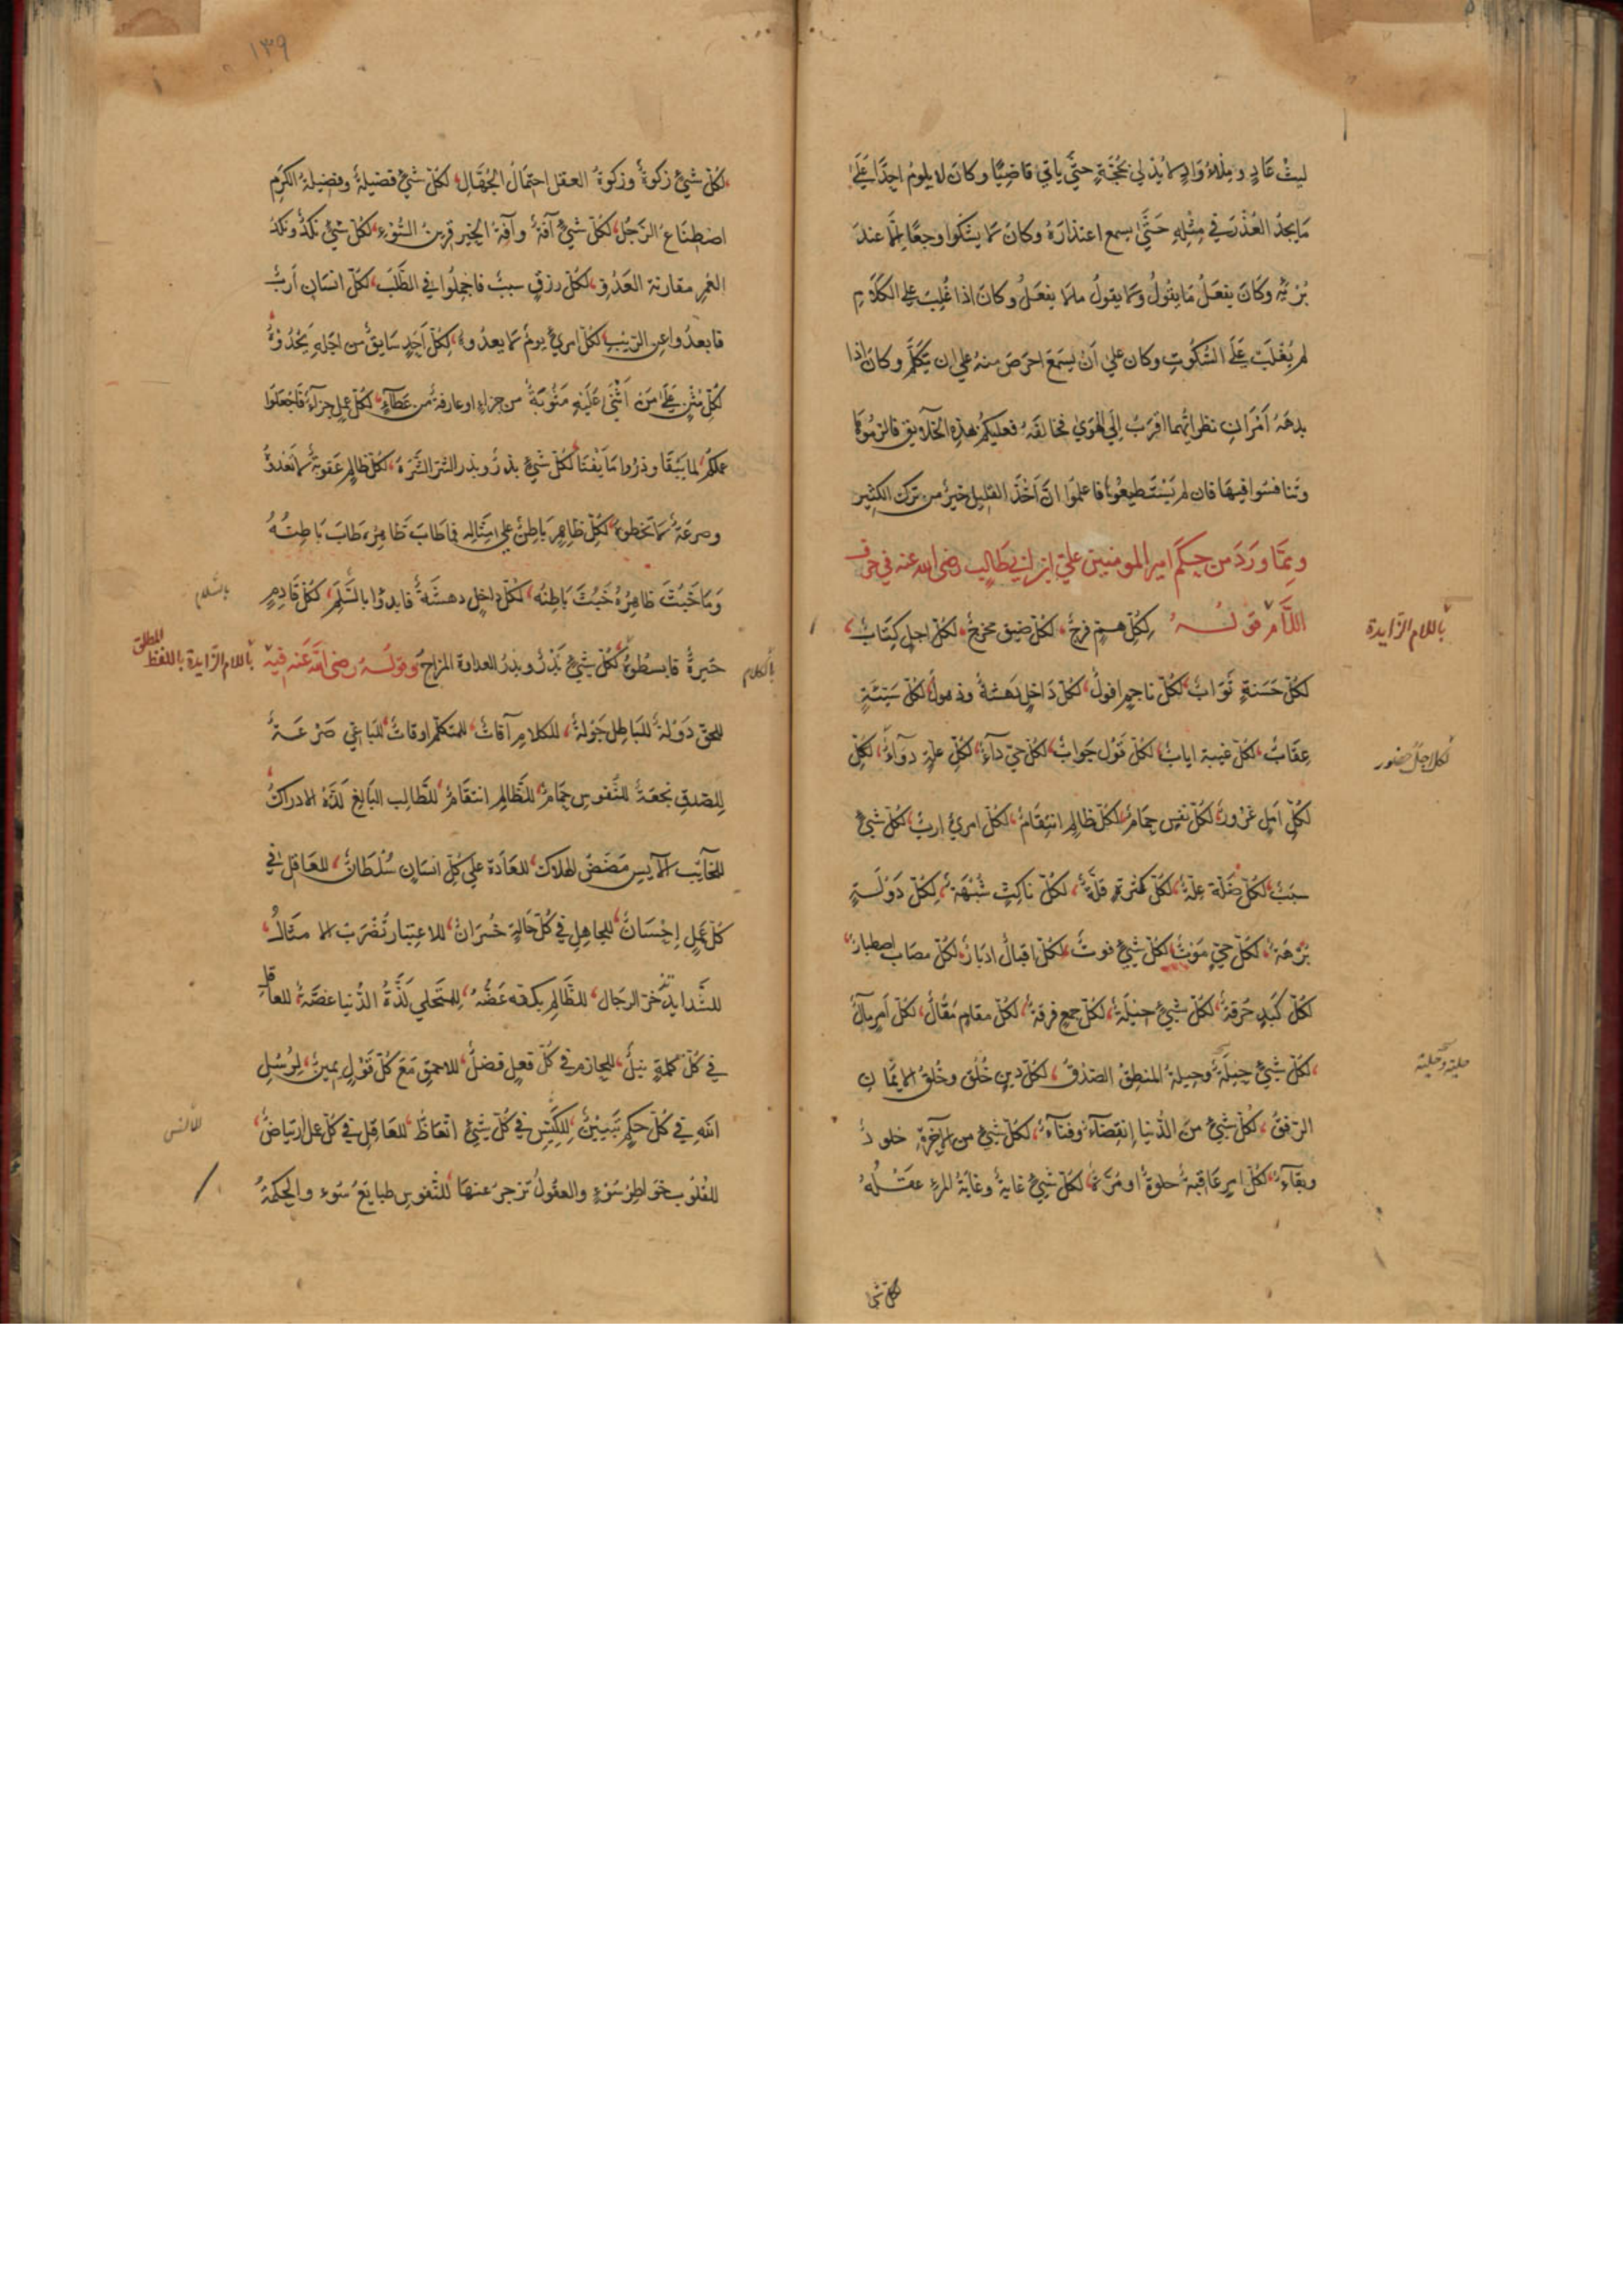 ليث عاد وصلّ واد لا يدلي بحجّة حتّى ياتي قاضيًا وكان لا يلوم احدًا على
ما يجد العذر في مثله حتّى يسمع اعتذاره وكان لا يشكوا وجعًا الّا عند
برئه وكان يفعل ما يقول ولا يقول ما لا يفعل وكان اذا غلب على الكلام
لم يغلب على السّكوت وكان على ان يسمع احرص منه على ان يتكلّم وكان اذا
بدهه امران نظر ايّهما اقرب الى الهوي فخالفه فعليكم بهذه الخلايق فالزموها
وتنافسوا فيها فان لم يستطيعوها فاعلموا انّ اخذ القليل خير من ترك الكثير
وممّا ورد من حكم امير المومنين علي ابن ابي طالب رضى الله عنه في حرف
اللّام قوله لكلّ همّ فرج، لكلّ ضيق مخرج، لكلّ اجل كتاب،
باللام الزّايدة
لكلّ حسنة ثواب، لكلّ ناجم افول، لكلّ داخل دهشة وذهول، لكلّ سيّئة
عقاب، لكلّ غيبة اياب، لكلّ قول جواب، لكلّ حيّ دآء، لكلّ علّة دوآء، لكلّ
لكل اجل حضور
لكلّ امل غرور، لكلّ نفس حمام، لكلّ ظالم انتقام، لكلّ امريء ارب، لكلّ شيء
سبب، لكلّ ضلّة علّة، لكلّ كثرة قلّة، لكلّ ناكث شبهة، لكلّ دولة
برهة، لكلّ حيّ موت، لكلّ شيء فوت، لكلّ اقبال ادبار، لكلّ مصاب اصطبار،
لكلّ كبد حرقة، لكلّ شيء حيلة، لكلّ جمع فرقة، لكلّ مقام مقال، لكلّ امر مآل
، لكلّ شيء حيلة وحيلة المنطق الصّدق، لكلّ دين خلق وخلق الايمان
حلية وحلية
الرّفق، لكلّ شيء من الدّنيا انقضآء وفنآء، لكلّ شيء من الاخرة خلود
وبقآء، لكلّ امر عاقبة حلوة او مرّة، لكلّ شيء غاية وغاية المرء عقله
لكلّ شي
١٣٩
، لكلّ شيء زكوة وزكوة العقل احتمال الجهّال، لكلّ شيء فضيلة وفضيلة الكرم
اصطناع الرّجل، لكلّ شيء آفة وآفة الخير قرين السّوء، لكلّ شيء نكد ونكد
العمر مقارنة العدو، لكلّ رزق سبب فاجملوا في الطّلب، لكلّ انسان ارب
فابعدوا عن الرّيب، لكلّ امريء يوم لا يعدوه، لكلّ احد سايق من اجله يحدوه
لكلّ مثن على من اثنى عليه مثوبة من جزاء او عارفة من عطآء، لكلّ عمل جزآء فاجعلوا
عملكم لما يبقا وذروا ما يفنا، لكلّ شيء بذر وبذر الشّر الشّره، لكلّ ظالم عقوبة لا تعدوه
وصرعة لا تخطوه، لكلّ ظاهر باطن على مثاله فما طاب ظاهره طاب باطنه
وما خبث ظاهره خبث باطنه، لكلّ داخل دهشة فابدوا بالسّلم، لكلّ قادم
بالسّلام
حيرة فابسطوه، لكلّ شيء بذر وبذر العداوة المزاح، وقوله رضى الله عنه فيه
باللام الزّايدة باللفظ المطلق
بالكلام
للحقّ دولة، للباطل جولة، للكلام آفات، للمتكلّم اوقات، للباغي صرعة
للصّدق نجعة، للنّفوس حمام، للظّالم انتقام، للطّالب البالغ لذّة الادراك
للخايب الآيس مضض الهلاك، للعادة على كلّ انسان سلطان، للعاقل في
كلّ عمل احسان، للجاهل في كلّ حالة خسران، للاعتبار تضرب الامثال،
للشّدايد تدّخر الرجال، للظّالم بكفّه عضّه، للمستحلي لذّة الدّنيا غصّة، للعاقل
في كلّ كلمة نبل، للحازم في كلّ فعل فضل، للاحمق مع كلّ قول يمين، لرسل
الله في كلّ حكم تبيين، للكيّس في كلّ شيء اتعاظ، للعاقل في كلّ عمل ارتياض،
للقلوب خواطر سوء والعقول تزجر عنها، للنّفوس طبايع سوء والحكمة